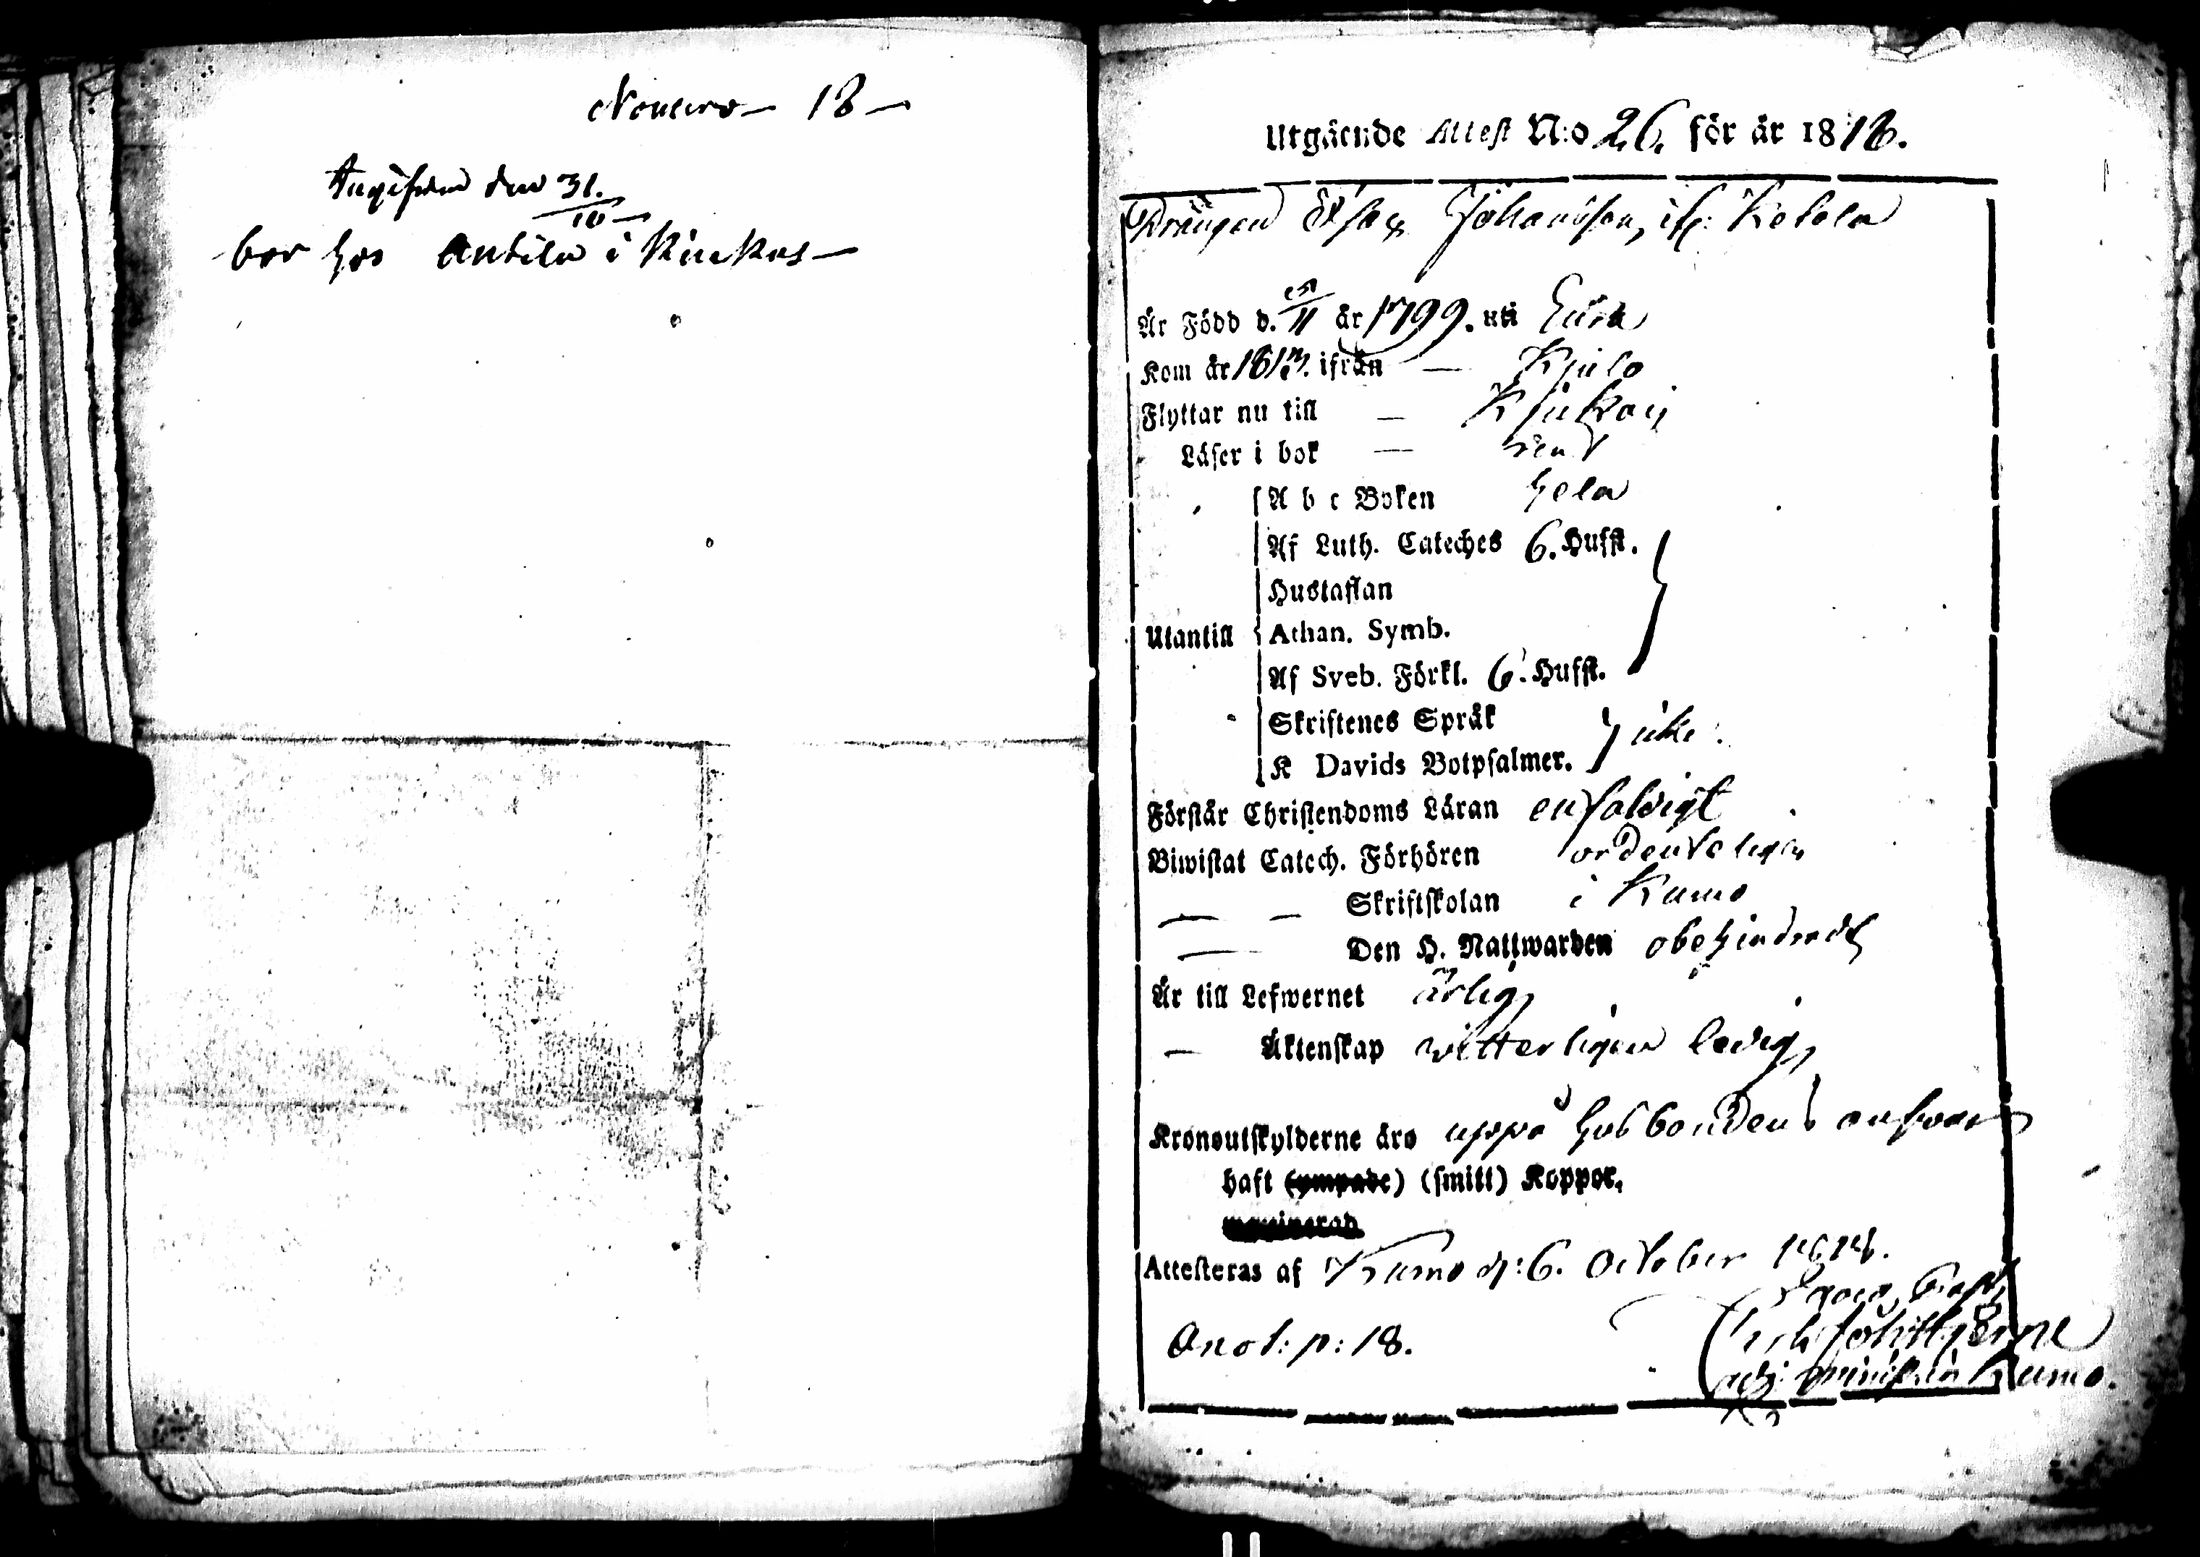 Numero 18
Angifven den 31.
10
bor hos Antila i Kiukas
Utgående Attest N:o 26. för år 1818.
Drängen Isac Johansson, if: Ketola
Är Född d. 11 år 1799. uti Eura
Kom år 181 . ifrån — Kjulo
Flyttar nu till — Kjukais
Läser i bok — rent
A b c Boken hela
Af Luth. Cateches 6. Hufst.
Hustaflan
Utantill Athan. Symb.
Af Sveb. Förkl. 6. Hufst.
Skriftenes Språk
K Davids Botpsalmer. icke
Förstår Christendoms Läran enfaldigt
Biwistat Catech. Förhören ordenteligen
— — Skriftskolan i Kumo
— Den H. Nattwarden obehindradt
Är till Lefwernet ärlig
— Äktenskap witterligen ledig,
Kronoutskylderne äro uppå husbondens answar
haft (ympade) (smitt) Koppor.
Attesteras af Kumo d: 6. October 1818.
Anot: p: 18.
adj: Kumo.